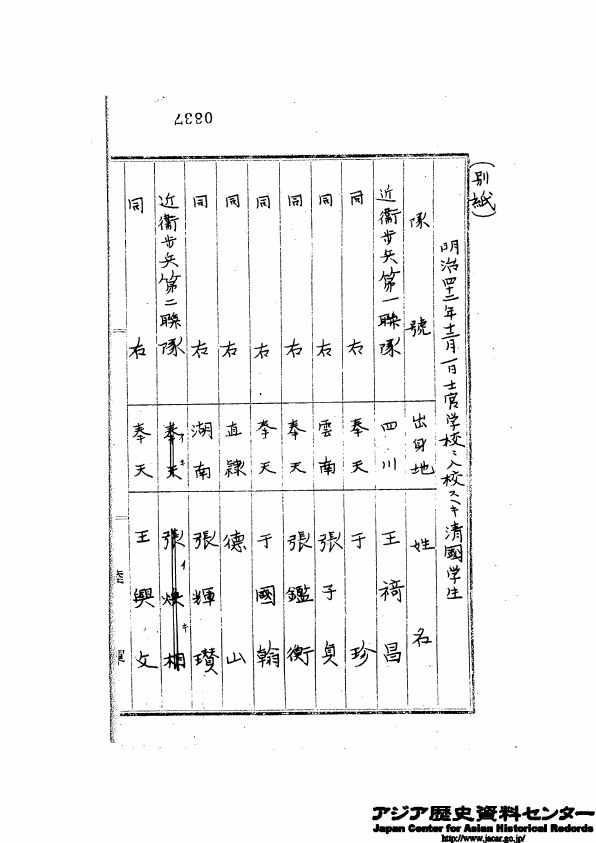 0837
(別紙)
明治四十二年十二月一日士官学校ニ入校スヘキ清國学生
隊號 出身地 姓名
近衞歩兵第一聯隊 四川 王 昌
同右 奉天 于珍
同右 雲南 張子貞
同右 奉天 張鑑衡
同右 奉天 于國翰
同右 直隷 德山
同右 湖南 張輝瓚
近衞歩兵第二聯隊 奉天 張煥相
同右 奉天 王興文
陸軍
アジア歴史資料センター
Japan Center for Asian Historical Records
http://www.jacar.go.jp/